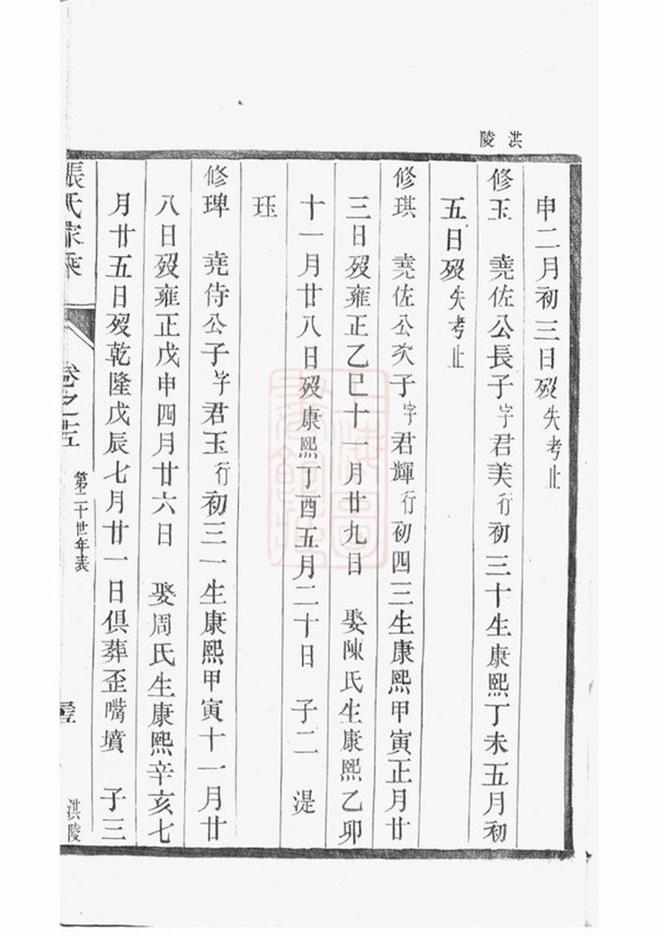 洪陵
申二月初三日歿失考止
修玉　堯佐公長子字君美行初三十生康熙丁未五月初
五日歿失考止
修琪　堯佐公次子字君輝行初四三生康熙甲寅正月廿
三日歿雍正乙巳十一月廿九日　娶陳氏生康熙乙卯
十一月廿八日歿康熙丁酉五月二十日　子二　湜
珏
修琕　堯侍公子字君玉行初三一生康熙甲寅十一月廿
八日歿雍正戊申四月廿六日　娶周氏生康熙辛亥七
月廿五日歿乾隆戊辰七月廿一日俱葬歪嘴墳　子三
張氏家乘　卷之　第二十世年表　洪陵